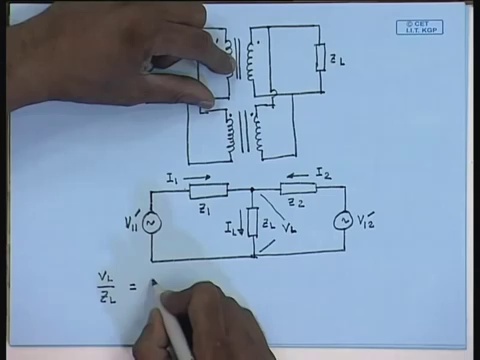 © CET
I.I.T. KGP
Z_L
I_1
I_2
Z_1
Z_2
V_11'
I_L
Z_L
V_L
V_12'
V_L / Z_L =